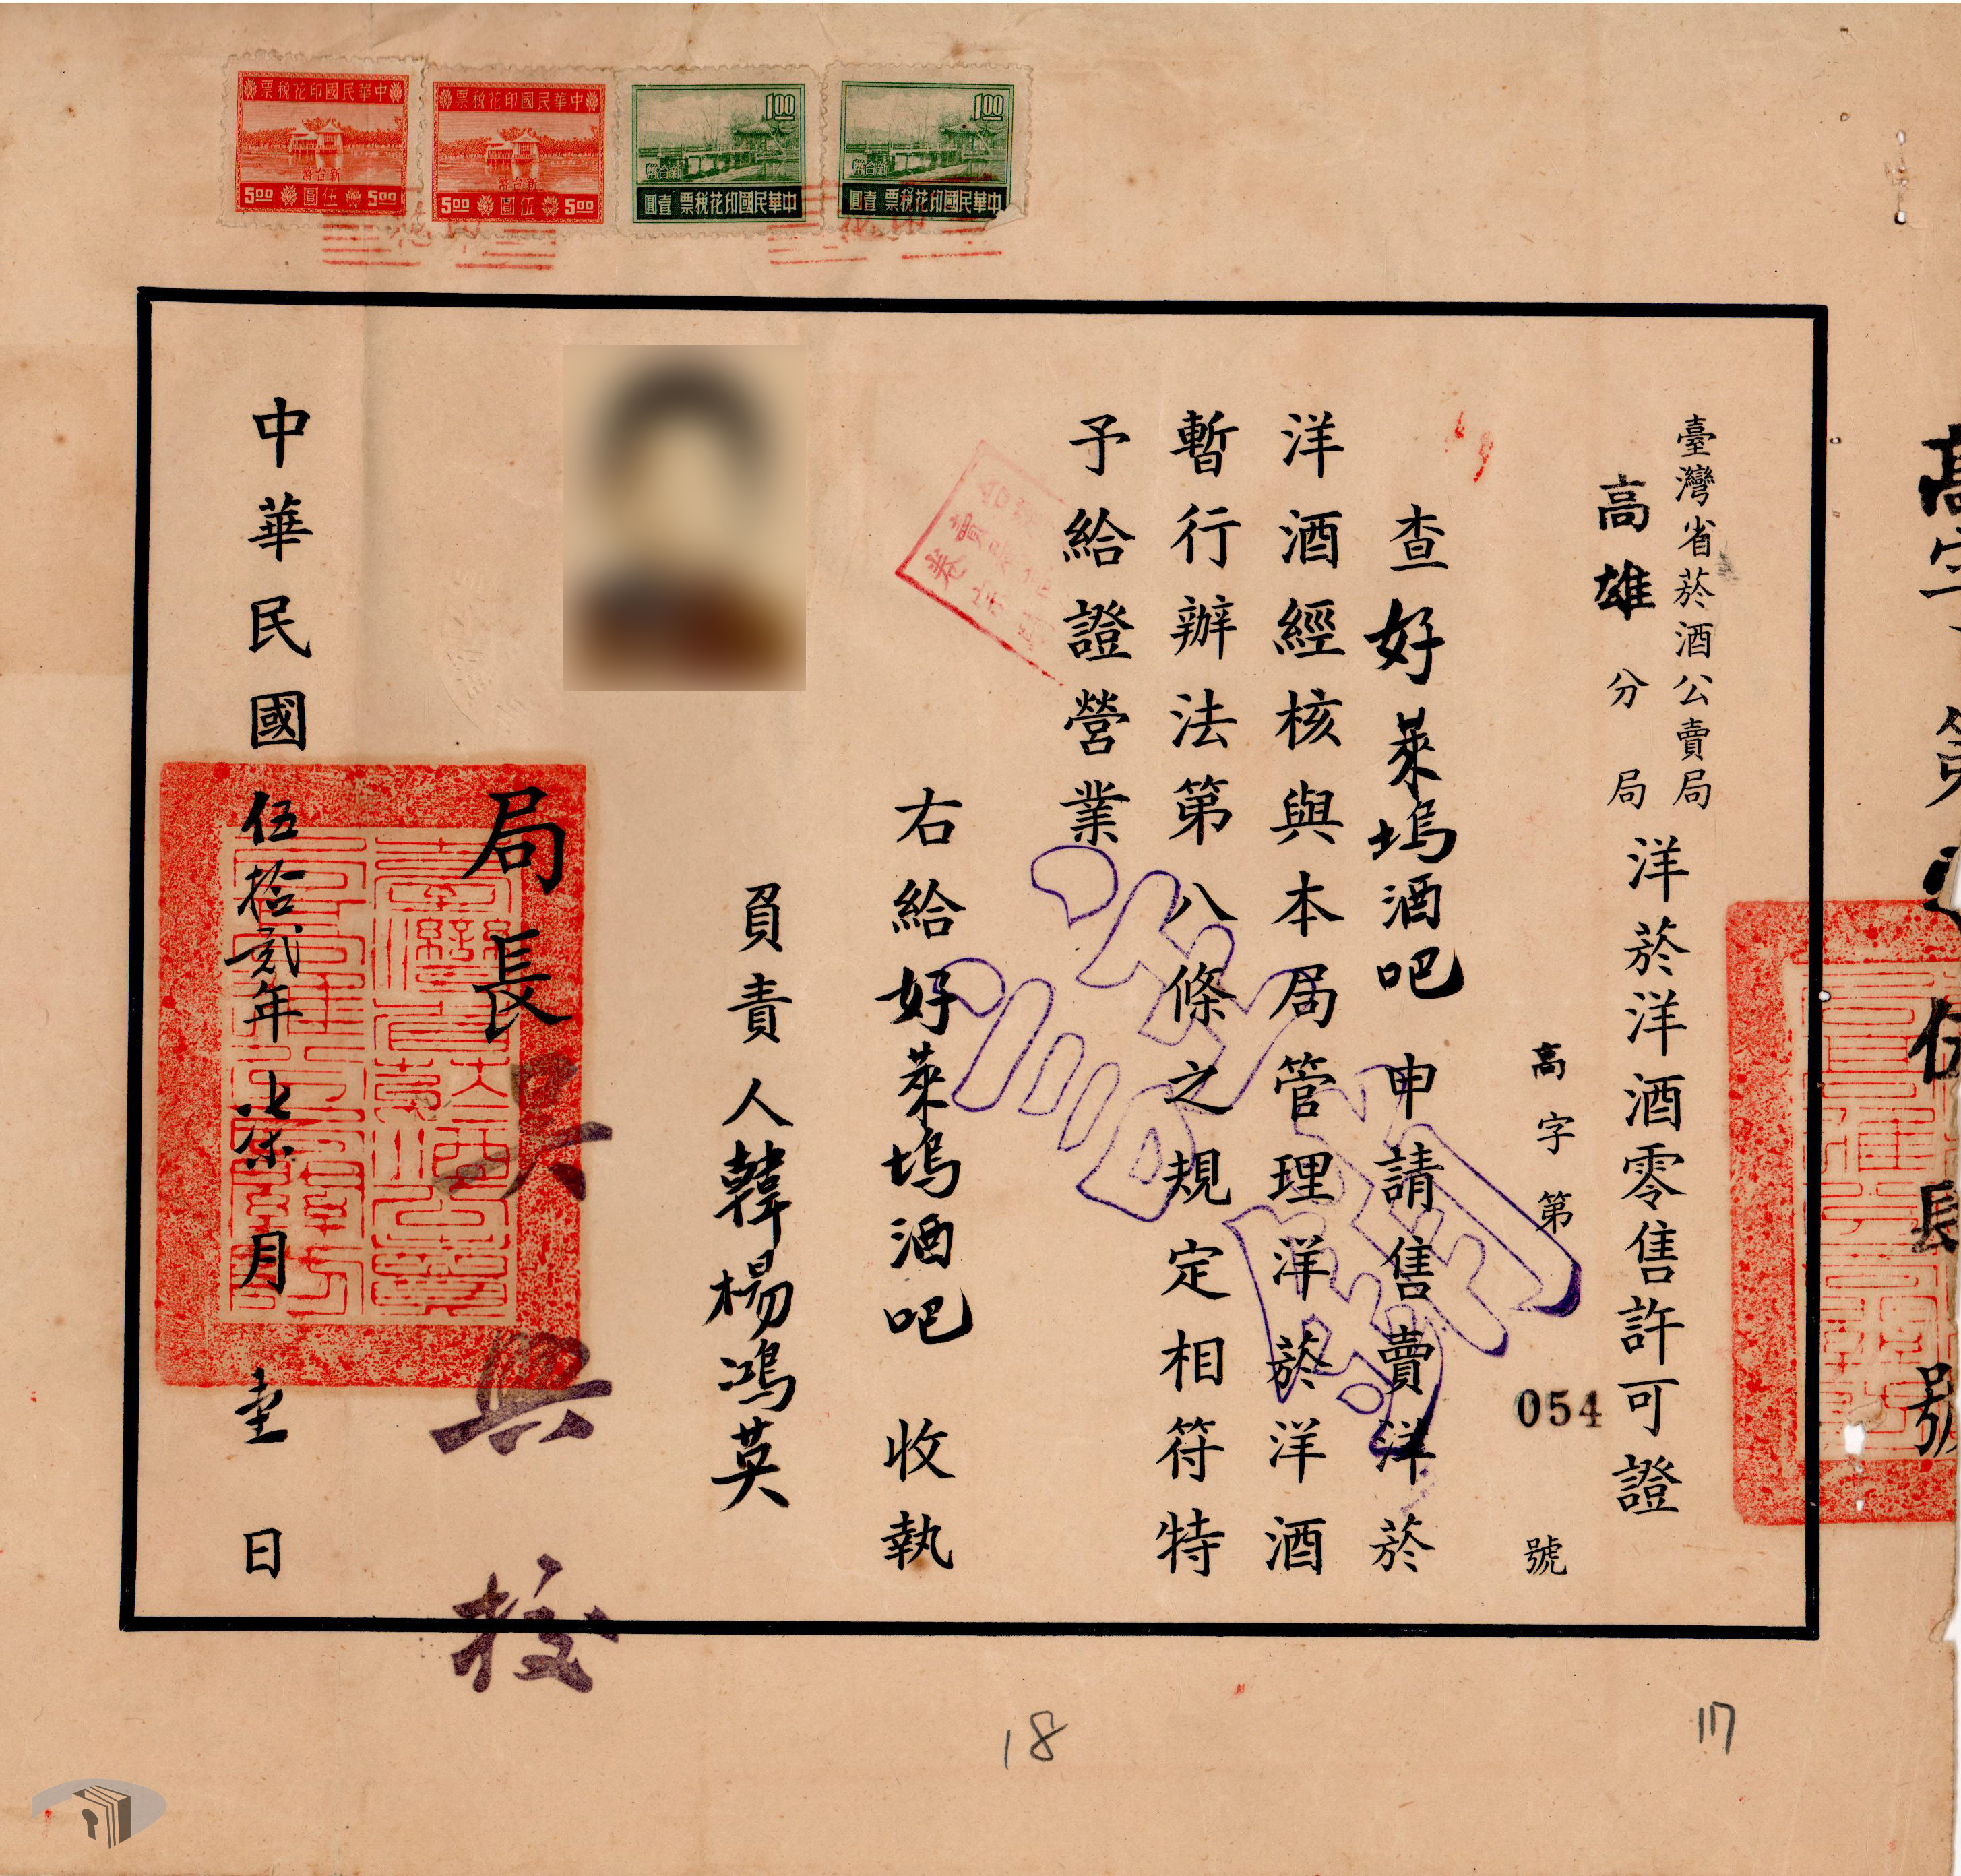 中華民國印花稅票
新台幣
5.00 伍圓 5.00
中華民國印花稅票
新台幣
5.00 伍圓 5.00
1.00
新台幣
中華民國印花稅票 壹圓
1.00
新台幣
中華民國印花稅票 壹圓
臺灣省菸酒公賣局
高雄分局
洋菸洋酒零售許可證
高字第054號
查好萊塢酒吧 申請售賣洋菸
洋酒經核與本局管理洋菸洋酒
暫行辦法第八條之規定相符特
予給證營業
右給好萊塢酒吧 收執
負責人韓楊鴻英
局長吳興
中華民國伍拾貳年柒月壹日
註銷
18
17